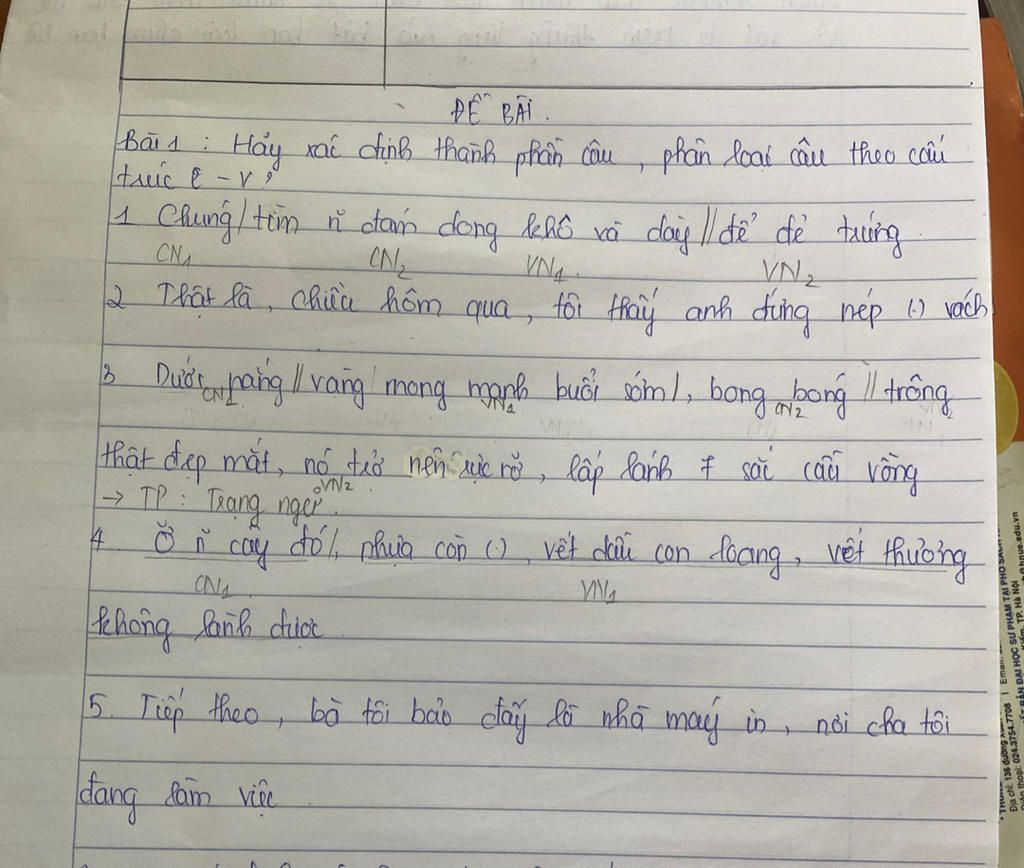 ĐỀ BÀI.
Bài 1 : Hãy xác định thành phần câu, phân loại câu theo cấu
trúc C - V
1 Chúng / tìm ñ đám dong khô và dày // để đẻ trứng.
CN1 CN2 VN1. VN2
2 Thật là, chiều hôm qua, tôi thấy anh đứng nép (.) vách
3 Dưới nắng // vàng / mong manh buổi sớm /, bong bóng // trông
CN1 VN1 CN2
thật đẹp mắt, nó trở nên rực rỡ, lấp lánh 7 sắc cầu vồng
VN2
→ TP : Trạng ngữ.
4 Ở ñ cây đó /, nhựa còn (.), vết dầu còn loang, vết thương
CN1 VN1
không lành được
5. Tiếp theo, bà tôi bảo đấy là nhà máy in, nơi cha tôi
đang làm việc
Địa chỉ: 136 đường
TP. Hà Nội
ĐẠI HỌC SƯ PHẠM TẠI PHỐ
Điện thoại: 024.3754.7708 | Email:
@hnue.edu.vn